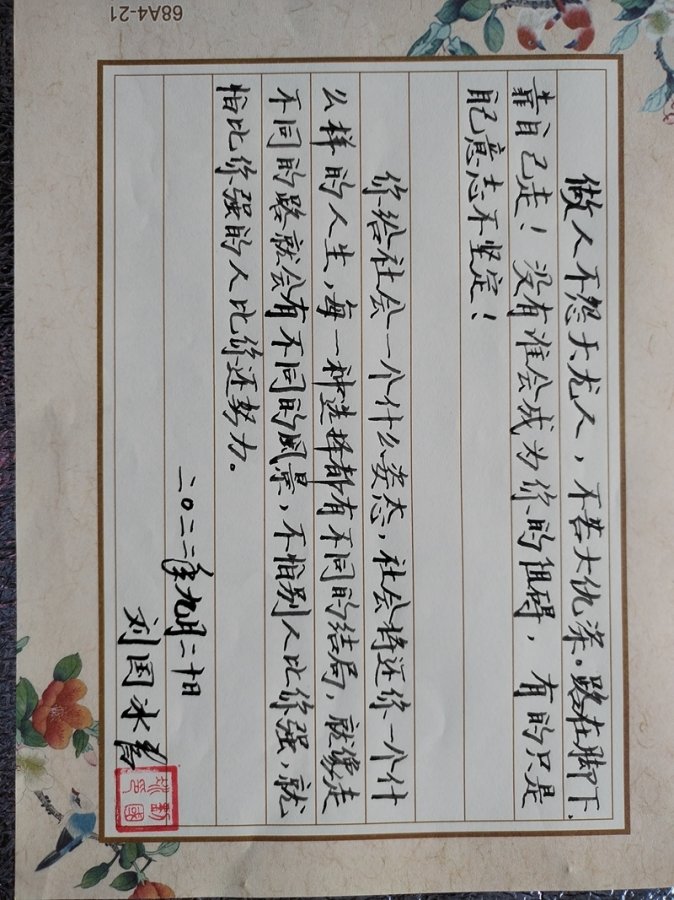 做人不怨天尤人，不苦大仇深。路在脚下，
靠自己走！没有谁会成为你的阻碍，有的只是
自己意志不坚定！
你给社会一个什么姿态，社会将还你一个什
么样的人生，每一种选择都有不同的结局，就像走
不同的路就会有不同的风景，不怕别人比你强，就
怕比你强的人比你还努力。
二〇二二年九月二十日
刘国冰书
68A4-21